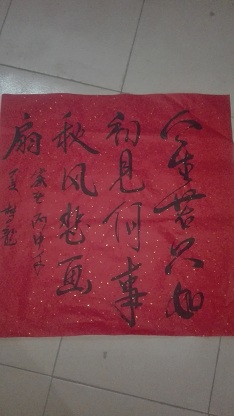 人生若只如
初見何事
秋风悲画
扇
丙申
夏